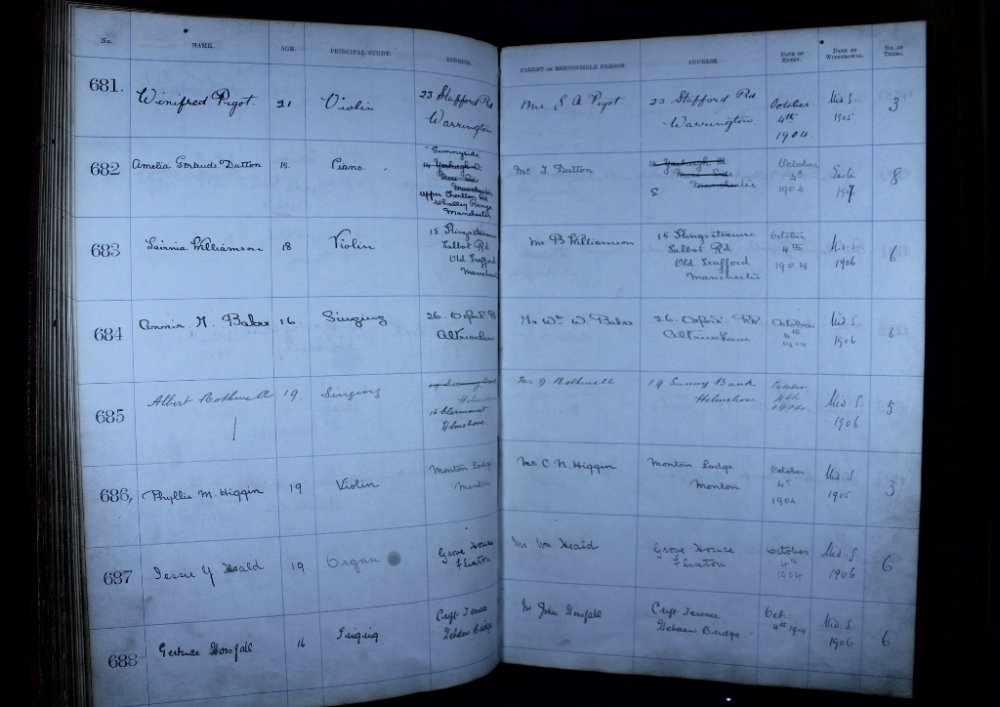 No. NAME. AGE. PRINCIPAL STUDY. ADDRESS. PARENT OR RESPONSIBLE PERSON. ADDRESS. DATE OF ENTRY. DATE OF WITHDRAWAL. NO. OF TERMS.
681. Winifred Pigot. 21 Violin 23 Stafford Rd Warrington Mr S A Pigot 23 Stafford Rd Warrington October 4th 1904. Mid S. 1905 3
682 Amelia Gertrude Dutton 18. Piano. Sunnyside Upper Chorlton Rd Whalley Range Manchester Mr T Dutton Manchester October 4th 1904 Easter 1907 8
683 Williamson 18 Violin 15 Talbot Rd Old Trafford Manchester Mr B Williamson 15 Talbot Rd Old Trafford Manchester October 4th 1904 Mid. S. 1906 6
684 Annie M. Baker 16. Singing 26. Oxford Rd Altrincham Mr Wm W Baker 26 Oxford Rd Altrincham October 4th Mid. S. 1906 6
685 Albert Rothwell 19 Singing 16 Claremont Helmshore Mr J Rothwell 19 Sunny Bank Helmshore October 4th 1904 Mid. S. 1906 5
686, Phyllis M. Higgin 19 Violin Monton Lodge Monton Mr C. N. Higgin Monton Lodge Monton October 4th 1904 Mid. S 1905 3
687 Jessie Y Heald 19 Organ Grove House Flixton Mr Wm Heald Grove House Flixton October 4th 1904 Mid. S 1906 6
688 Gertrude Horsfall 16 Singing Croft Terrace Hebden Bridge Mr John Horsfall Croft Terrace Hebden Bridge Oct. 4th 1904 Mid. S 1906 6